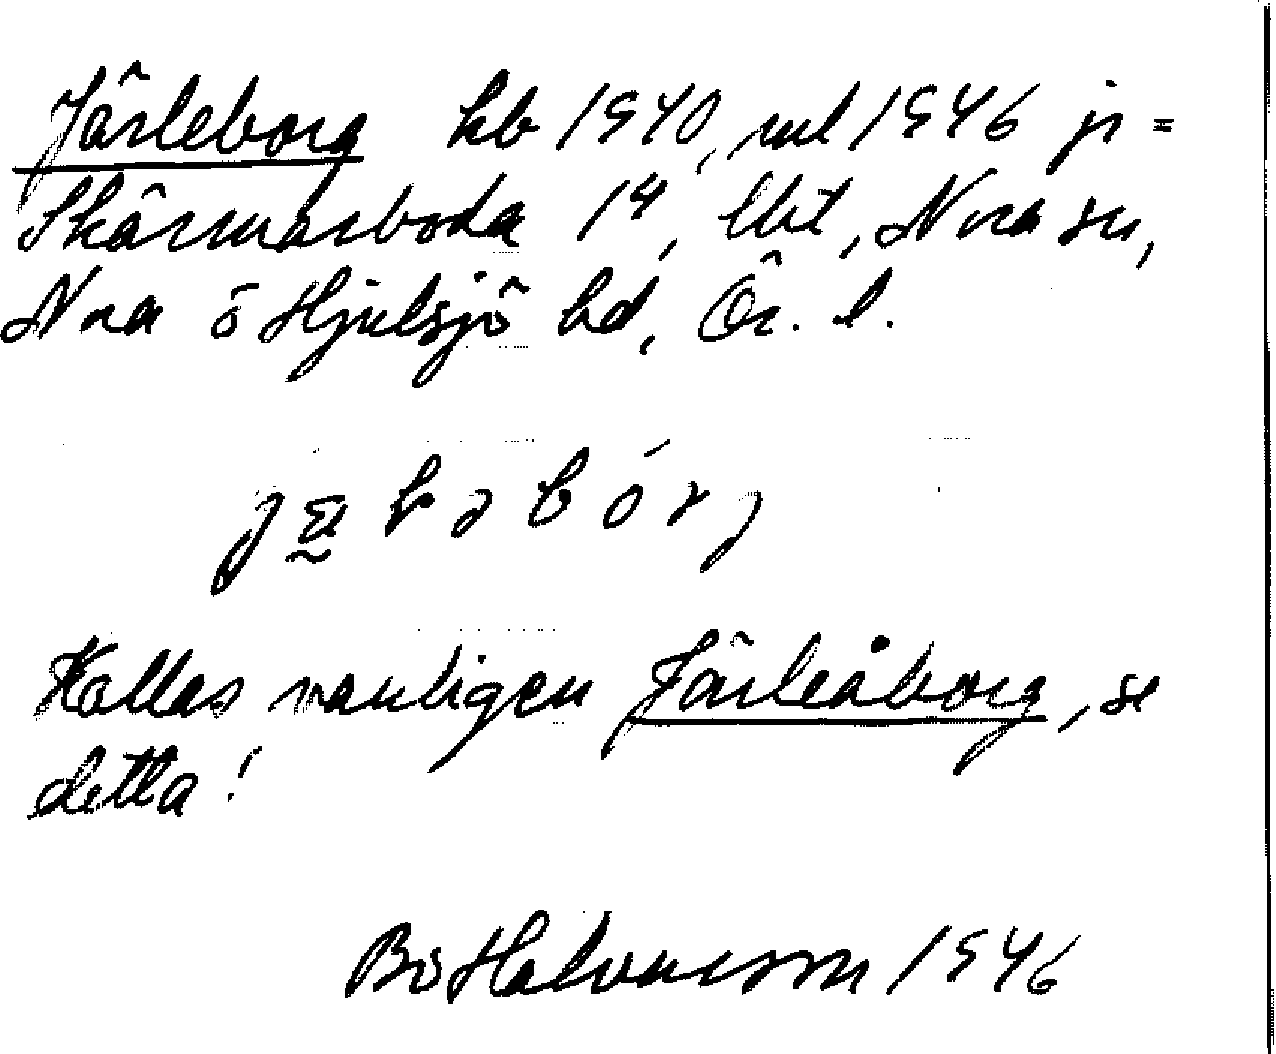 Järleborg kb 1940, rul 1946 jr =
Skärmarboda 1⁴, lht, Nora sn,
Nora o Hjulsjö bd, Ör. l.
Kallas vanligen Järleåborg, se
detta!
Bo Halvarsson 1946